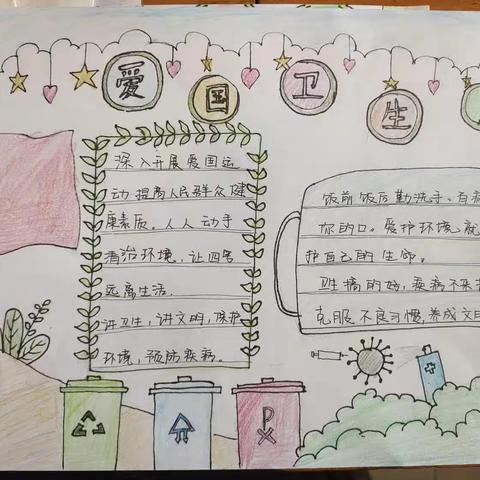 爱国卫生
深入开展爱国运
动 提高人民群众健
康素质。人人动手
清治环境,让四害
远离生活.
讲卫生,讲文明,保护
环境,预防疾病。
饭前饭后勤洗手、有
你的口。爱护环境就
护自己的生命。
卫生搞的好,疾病不来
克服不良习惯,养成文明